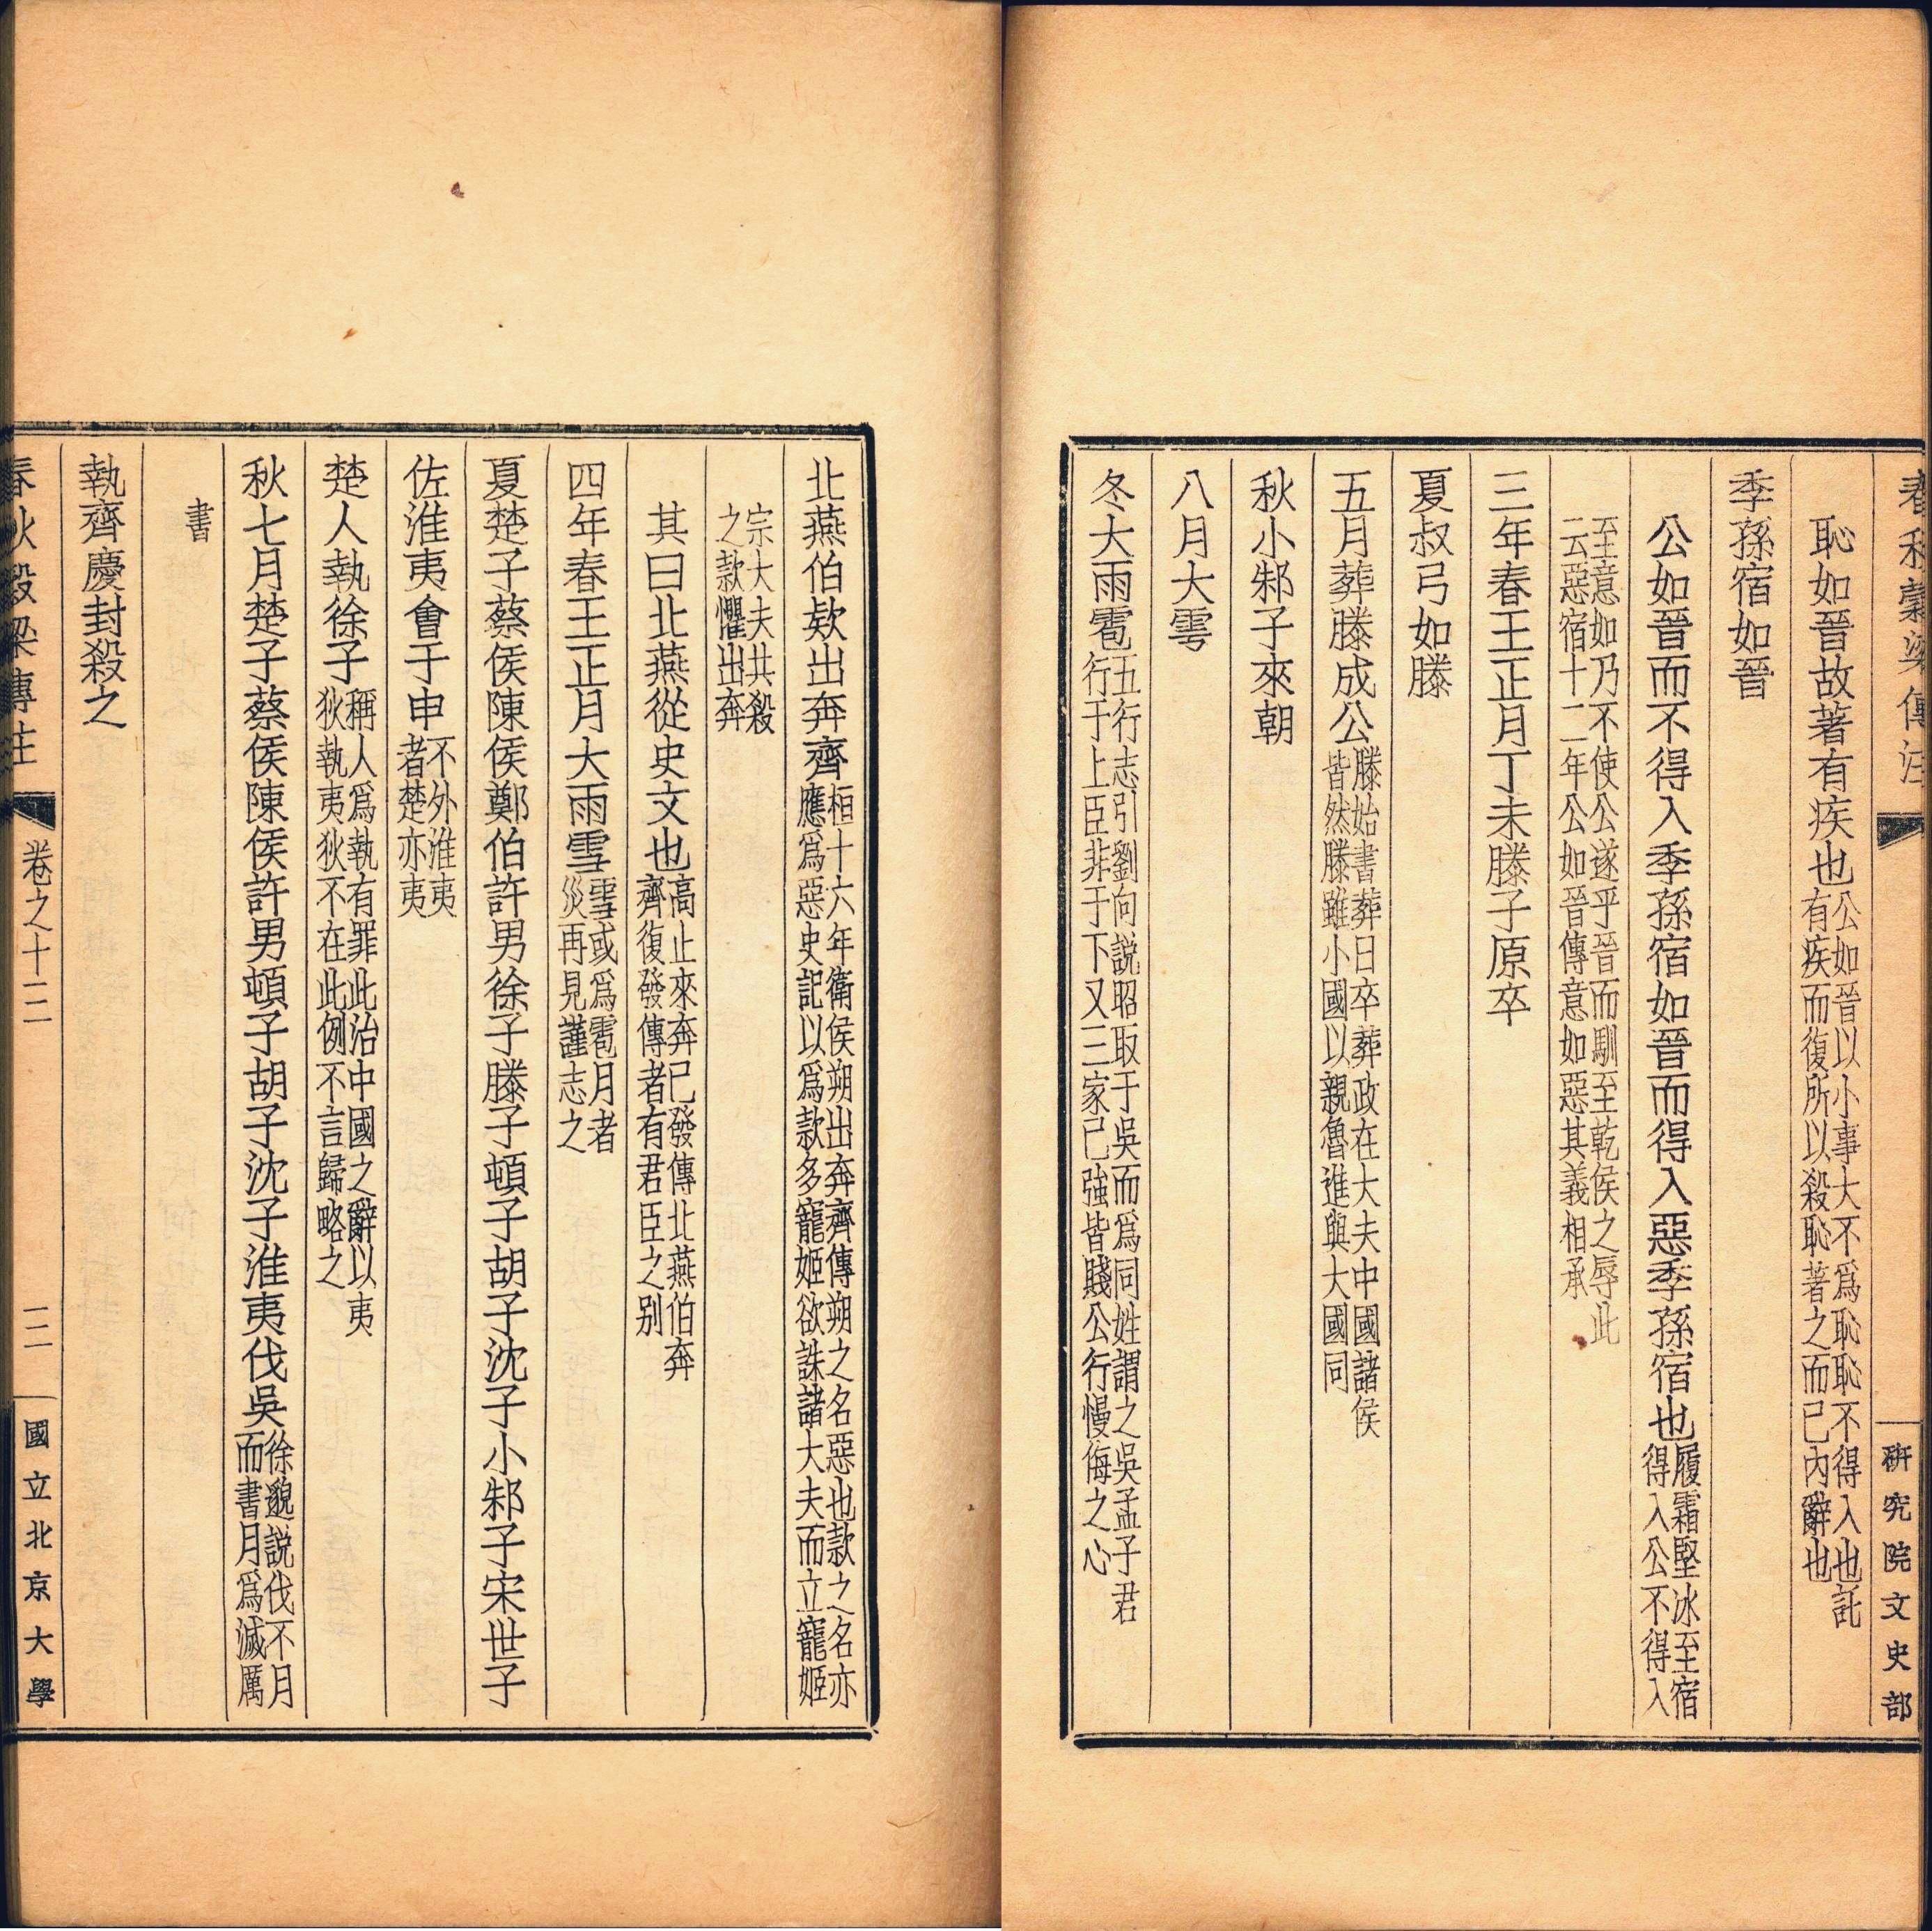 春秋穀梁傳注
研究院文史部
恥如晉故著有疾也公如晉以小事大不爲恥恥不得入也託有疾而復所以殺恥著之而已內辭也
季孫宿如晉
公如晉而不得入季孫宿如晉而得入惡季孫宿也履霜堅冰至宿得入公不得入
至意如乃不使公遂乎晉而馴至乾侯之辱此云惡宿十二年公如晉傳意如惡其義相承
三年春王正月丁未滕子原卒
夏叔弓如滕
五月葬滕成公滕始書葬日卒葬政在大夫中國諸侯皆然滕雖小國以親魯進與大國同
秋小邾子來朝
八月大雩
冬大雨雹五行志引劉向說昭取于吳而爲同姓謂之吳孟子君行于上臣非于下又三家已強皆賤公行慢侮之心
北燕伯欵出奔齊桓十六年衛侯朔出奔齊傳朔之名惡也款之名亦應爲惡史記以爲款多寵姬欲誅諸大夫而立寵姬
宗大夫共殺之款懼出奔
其曰北燕從史文也高止來奔已發傳北燕伯奔齊復發傳者有君臣之别
四年春王正月大雨雪雪或爲雹月者災再見謹志之
夏楚子蔡侯陳侯鄭伯許男徐子滕子頓子胡子沈子小邾子宋世子
佐淮夷會于申不外淮夷者楚亦夷
楚人執徐子稱人爲執有罪此治中國之辭以夷狄執夷狄不在此例不言歸略之
秋七月楚子蔡侯陳侯許男頓子胡子沈子淮夷伐吳徐邈説伐不月而書月爲滅厲
書
執齊慶封殺之
春秋穀梁傳注
卷之十二
二
國立北京大學